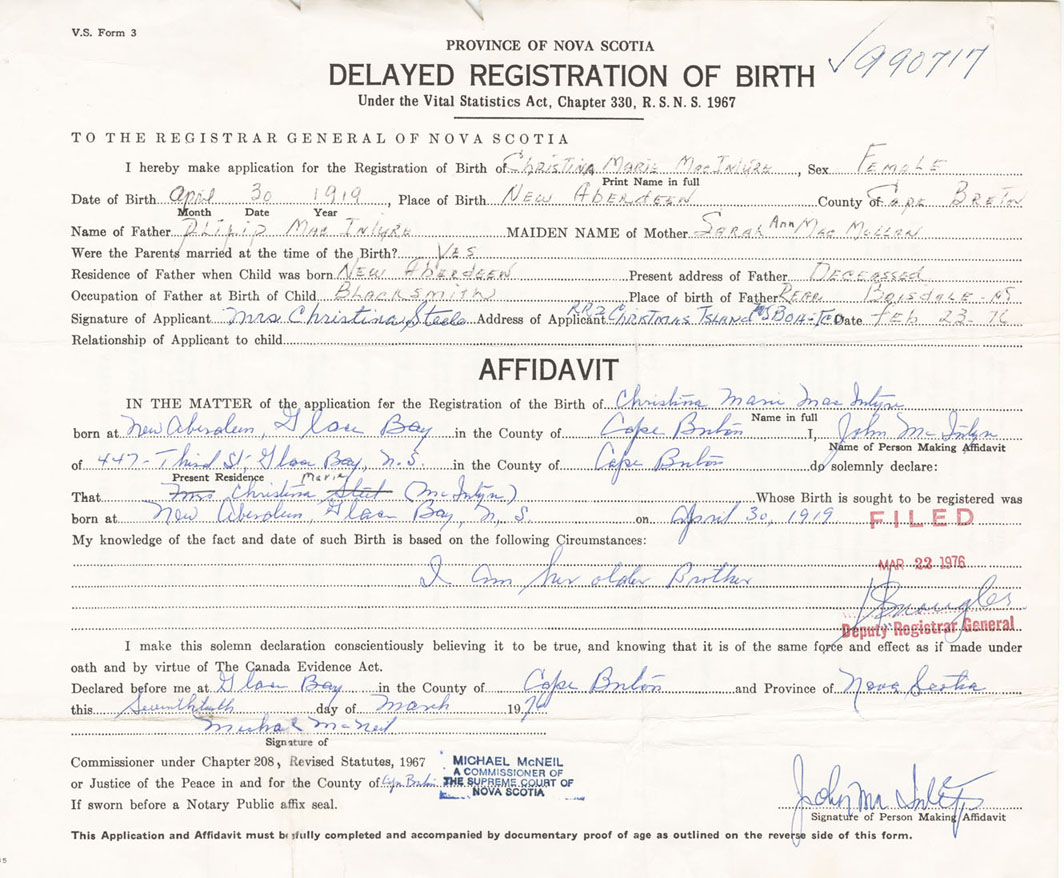 V.S. Form 3
PROVINCE OF NOVA SCOTIA
DELAYED REGISTRATION OF BIRTH
990717
Under the Vital Statistics Act, Chapter 330, R.S.N.S. 1967
TO THE REGISTRAR GENERAL OF NOVA SCOTIA
I hereby make application for the Registration of Birth of Christina Marie MacIntyre, Sex Female
Print Name in full
Date of Birth April 30 1919, Place of Birth New Aberdeen County of Cape Breton
Month Date Year
Name of Father Mac Intyre MAIDEN NAME of Mother Sarah Ann Mac Mullan
Were the Parents married at the time of the Birth? Yes
Residence of Father when Child was born New Aberdeen Present address of Father Deceased
Occupation of Father at Birth of Child Blacksmith Place of birth of Father Rear Boisdale - NS
Signature of Applicant Mrs Christina Steele Address of Applicant RR2 Christmas Island NS Date Feb 23-76
Relationship of Applicant to child
AFFIDAVIT
IN THE MATTER of the application for the Registration of the Birth of Christina Marie Mac Intyre
Name in full
born at New Aberdeen, Glace Bay in the County of Cape Breton I, John McIntyre
Name of Person Making Affidavit
of 447-Third St, Glace Bay, N.S. in the County of Cape Breton do solemnly declare:
Present Residence
That Mrs Christina Marie Steel (McIntyre) Whose Birth is sought to be registered was
born at New Aberdeen, Glace Bay, N.S. on April 30, 1919
FILED
My knowledge of the fact and date of such Birth is based on the following Circumstances:
MAR 22 1976
I am her older Brother
Deputy Registrar General
I make this solemn declaration conscientiously believing it to be true, and knowing that it is of the same force and effect as if made under
oath and by virtue of The Canada Evidence Act.
Declared before me at Glace Bay in the County of Cape Breton and Province of Nova Scotia
this day of March 1976
Michael McNeil
Signature of
Commissioner under Chapter 208, Revised Statutes, 1967
or Justice of the Peace in and for the County of Cape Breton
If sworn before a Notary Public affix seal.
MICHAEL McNEIL
A COMMISSIONER OF
THE SUPREME COURT OF
NOVA SCOTIA
John McIntyre
Signature of Person Making Affidavit
This Application and Affidavit must be fully completed and accompanied by documentary proof of age as outlined on the reverse side of this form.